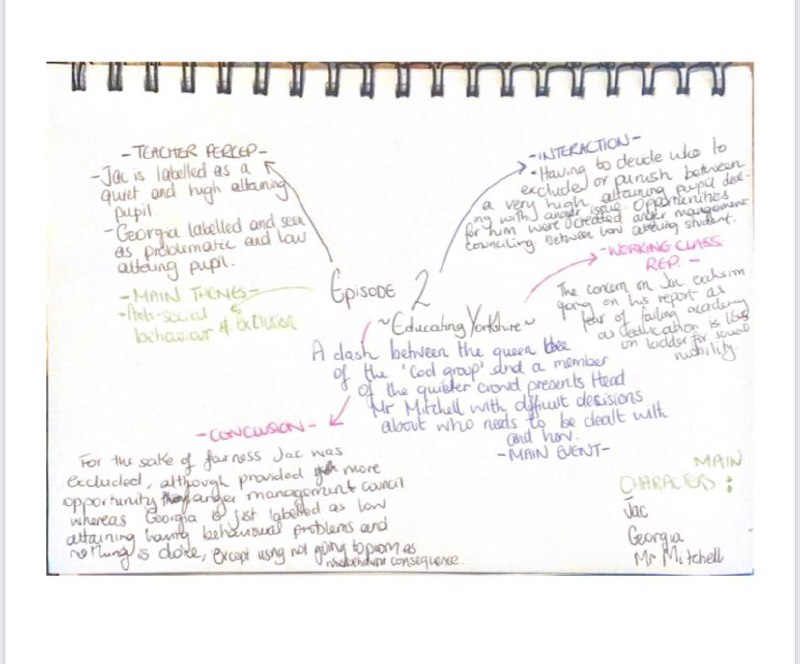 - TEACHER PERCEP -
- Jac is labelled as a
quiet and high attaining
pupil.
- Georgia labelled and seen
as problematic and low
attaining pupil.
- MAIN THEMES -
- Anti-social
behaviour & exclusion
- INTERACTION -
- Having to decide who to
exclude or punish between
a very high attaining pupil deal-
ing with anger issue. Opportunities
for him were created anger management
counciling. Between low attaing student.
- WORKING CLASS
REP. -
The concern on Jac exclusion
going on his report as
fear of failing academy
as education is
on ladder for social
mobility.
Episode 2
~ Educating Yorkshire ~
A clash between the queen bee
of the 'Cool group' and a member
of the quieter crowd presents Head
Mr Mitchell with difficult decisions
about who needs to be dealt with
and how.
- MAIN EVENT -
- CONCLUSION -
For the sake of fairness Jac was
excluded, although provided more
opportunity anger management council
whereas Georgia is just labelled as low
attaining having behavioural problems and
nothing is done, except using not going to prom as
misbehaviour consequence.
MAIN
CHARACTERS :
Jac
Georgia
Mr Mitchell